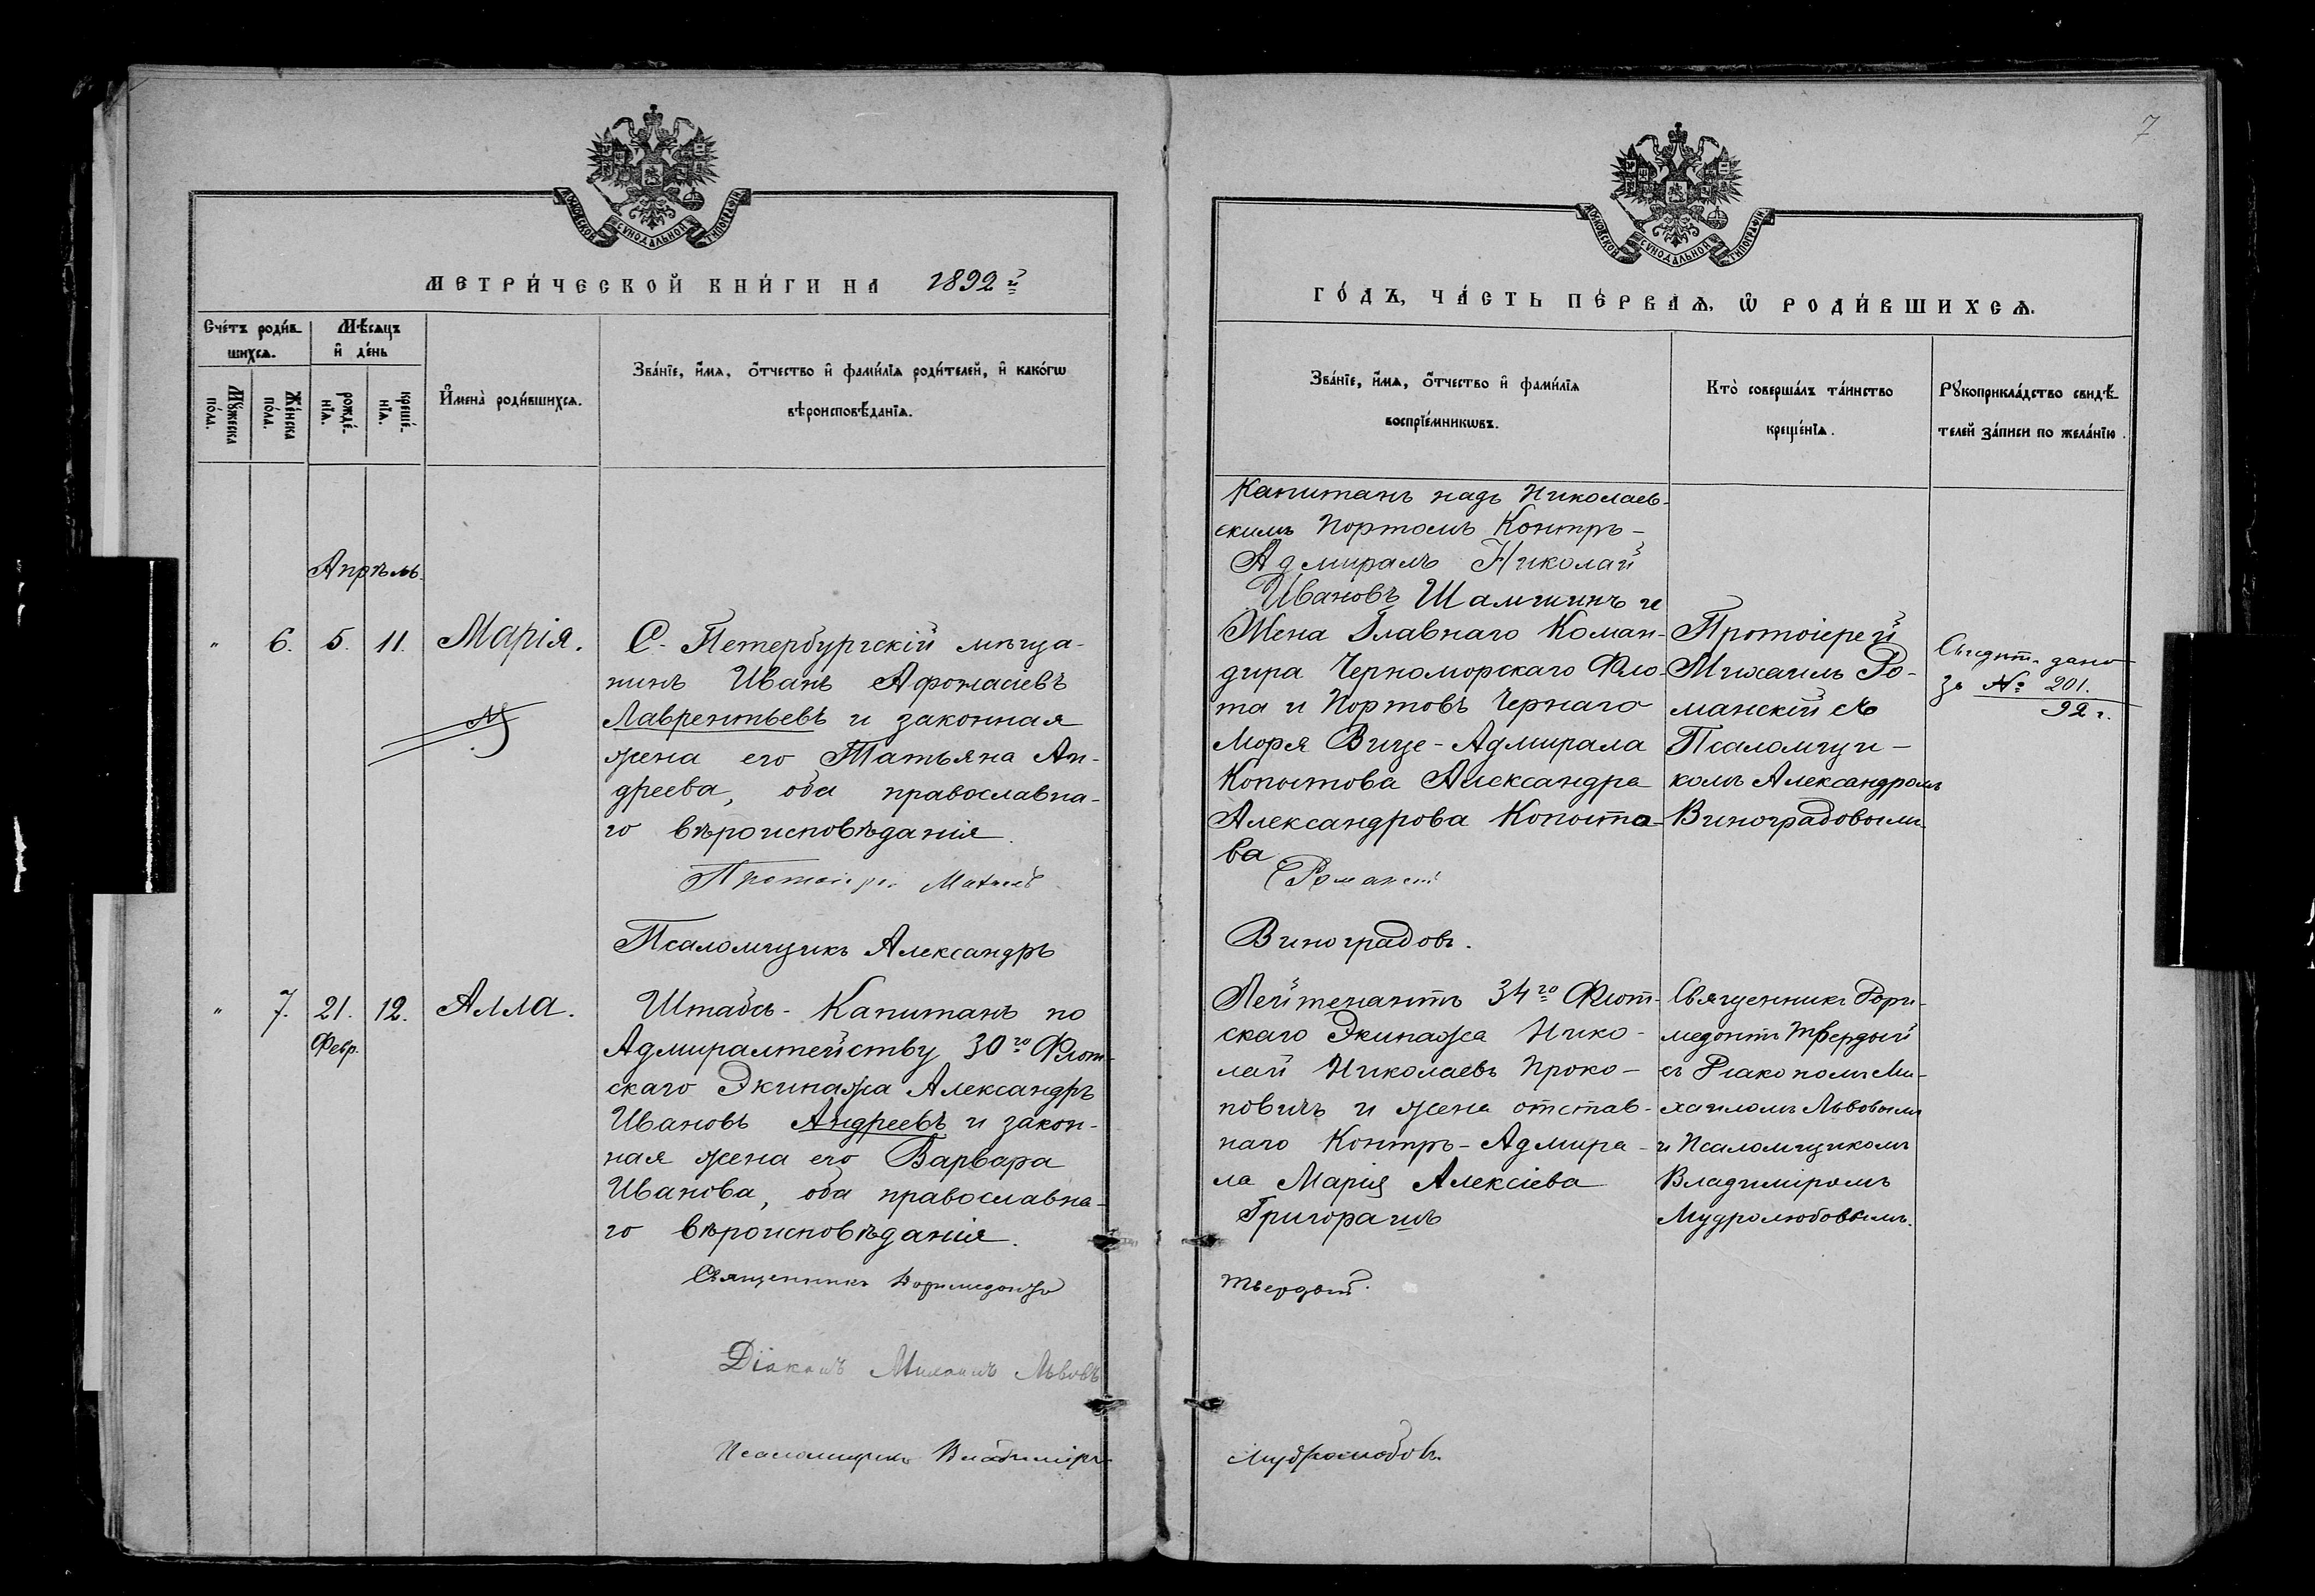 7
МОСКОВСКОЙ СѴНОДАЛЬНОЙ ТИПОГРАФІИ
МЕТРИ́ЧЕСКОЙ КНИ́ГИ НА 1892й
Сче́тъ роди́в-
шихсѧ.
Мѣ́сѧцъ
и҆ де́нь
Мꙋ́жеска по́ла.
Же́нска по́ла.
рожде́-
нїѧ.
креще́-
нїѧ.
И҆мена̀ роди́вшихсѧ.
Зва́нїе, и҆́мѧ, ѻ҆́тчество и҆ фами́лїѧ роди́телей, и҆ како́гѡ
вѣроисповѣ́данїѧ.
Апрѣль.
" 6. 5. 11. Марія.
С.-Петербургскій мѣща-
нинъ Иванъ Афонасіевъ
Лаврентьевъ и законная
жена его Татьяна Ан-
дреева, оба православна-
го вѣроисповѣданія.
Псаломщикъ Александръ
" 7. 21. 12. Алла.
Февр.
Штабсъ-Капитанъ по
Адмиралтейству 30го Флот-
скаго Экипажа Александръ
Ивановъ Андреевъ и закон-
ная жена его Варвара
Иванова, оба православна-
го вѣроисповѣданія.
Священникъ Доримедонтъ
Діаконъ Михаилъ Львовъ
Псаломщикъ Владиміръ
МОСКОВСКОЙ СѴНОДАЛЬНОЙ ТИПОГРАФІИ
ГО́ДЪ, ЧА́СТЬ ПЕ́РВАѦ, Ѡ҆ РОДИ́ВШИХСѦ.
Зва́нїе, и҆́мѧ, ѻ҆́тчество и҆ фами́лїѧ
воспрїе́мникѡвъ.
Кто̀ соверша́лъ та́инство
креще́нїѧ.
Рꙋкоприкла́дство свидѣ́-
телей за́писи по жела́нїю.
Капитанъ надъ Николаев-
скимъ Портомъ Контръ-
Адмиралъ Николай
Ивановъ Шамшинъ и
Жена Главнаго Коман-
дира Черноморскаго Фло-
та и Портовъ Чернаго
Моря Вице-Адмирала
Копытова Александра
Александрова Копыто-
ва
Протоіерей
Михаилъ Ро-
манскій съ
Псаломщи-
комъ Александромъ
Виноградовымъ
Свидѣт. дано
за № 201.
92 г.
Виноградовъ.
Лейтенантъ 34го Флот-
скаго Экипажа Нико-
лай Николаевъ Проко-
повичъ и жена отстав-
наго Контръ-Адмира-
ла Марія Алексіева
Григорашъ
Священникъ Дори-
медонтъ Твердый
съ Діакономъ Ми-
хаиломъ Львовымъ
и Псаломщикомъ
Владиміромъ
Мудролюбовымъ.
Твердый.
Мудролюбовъ.